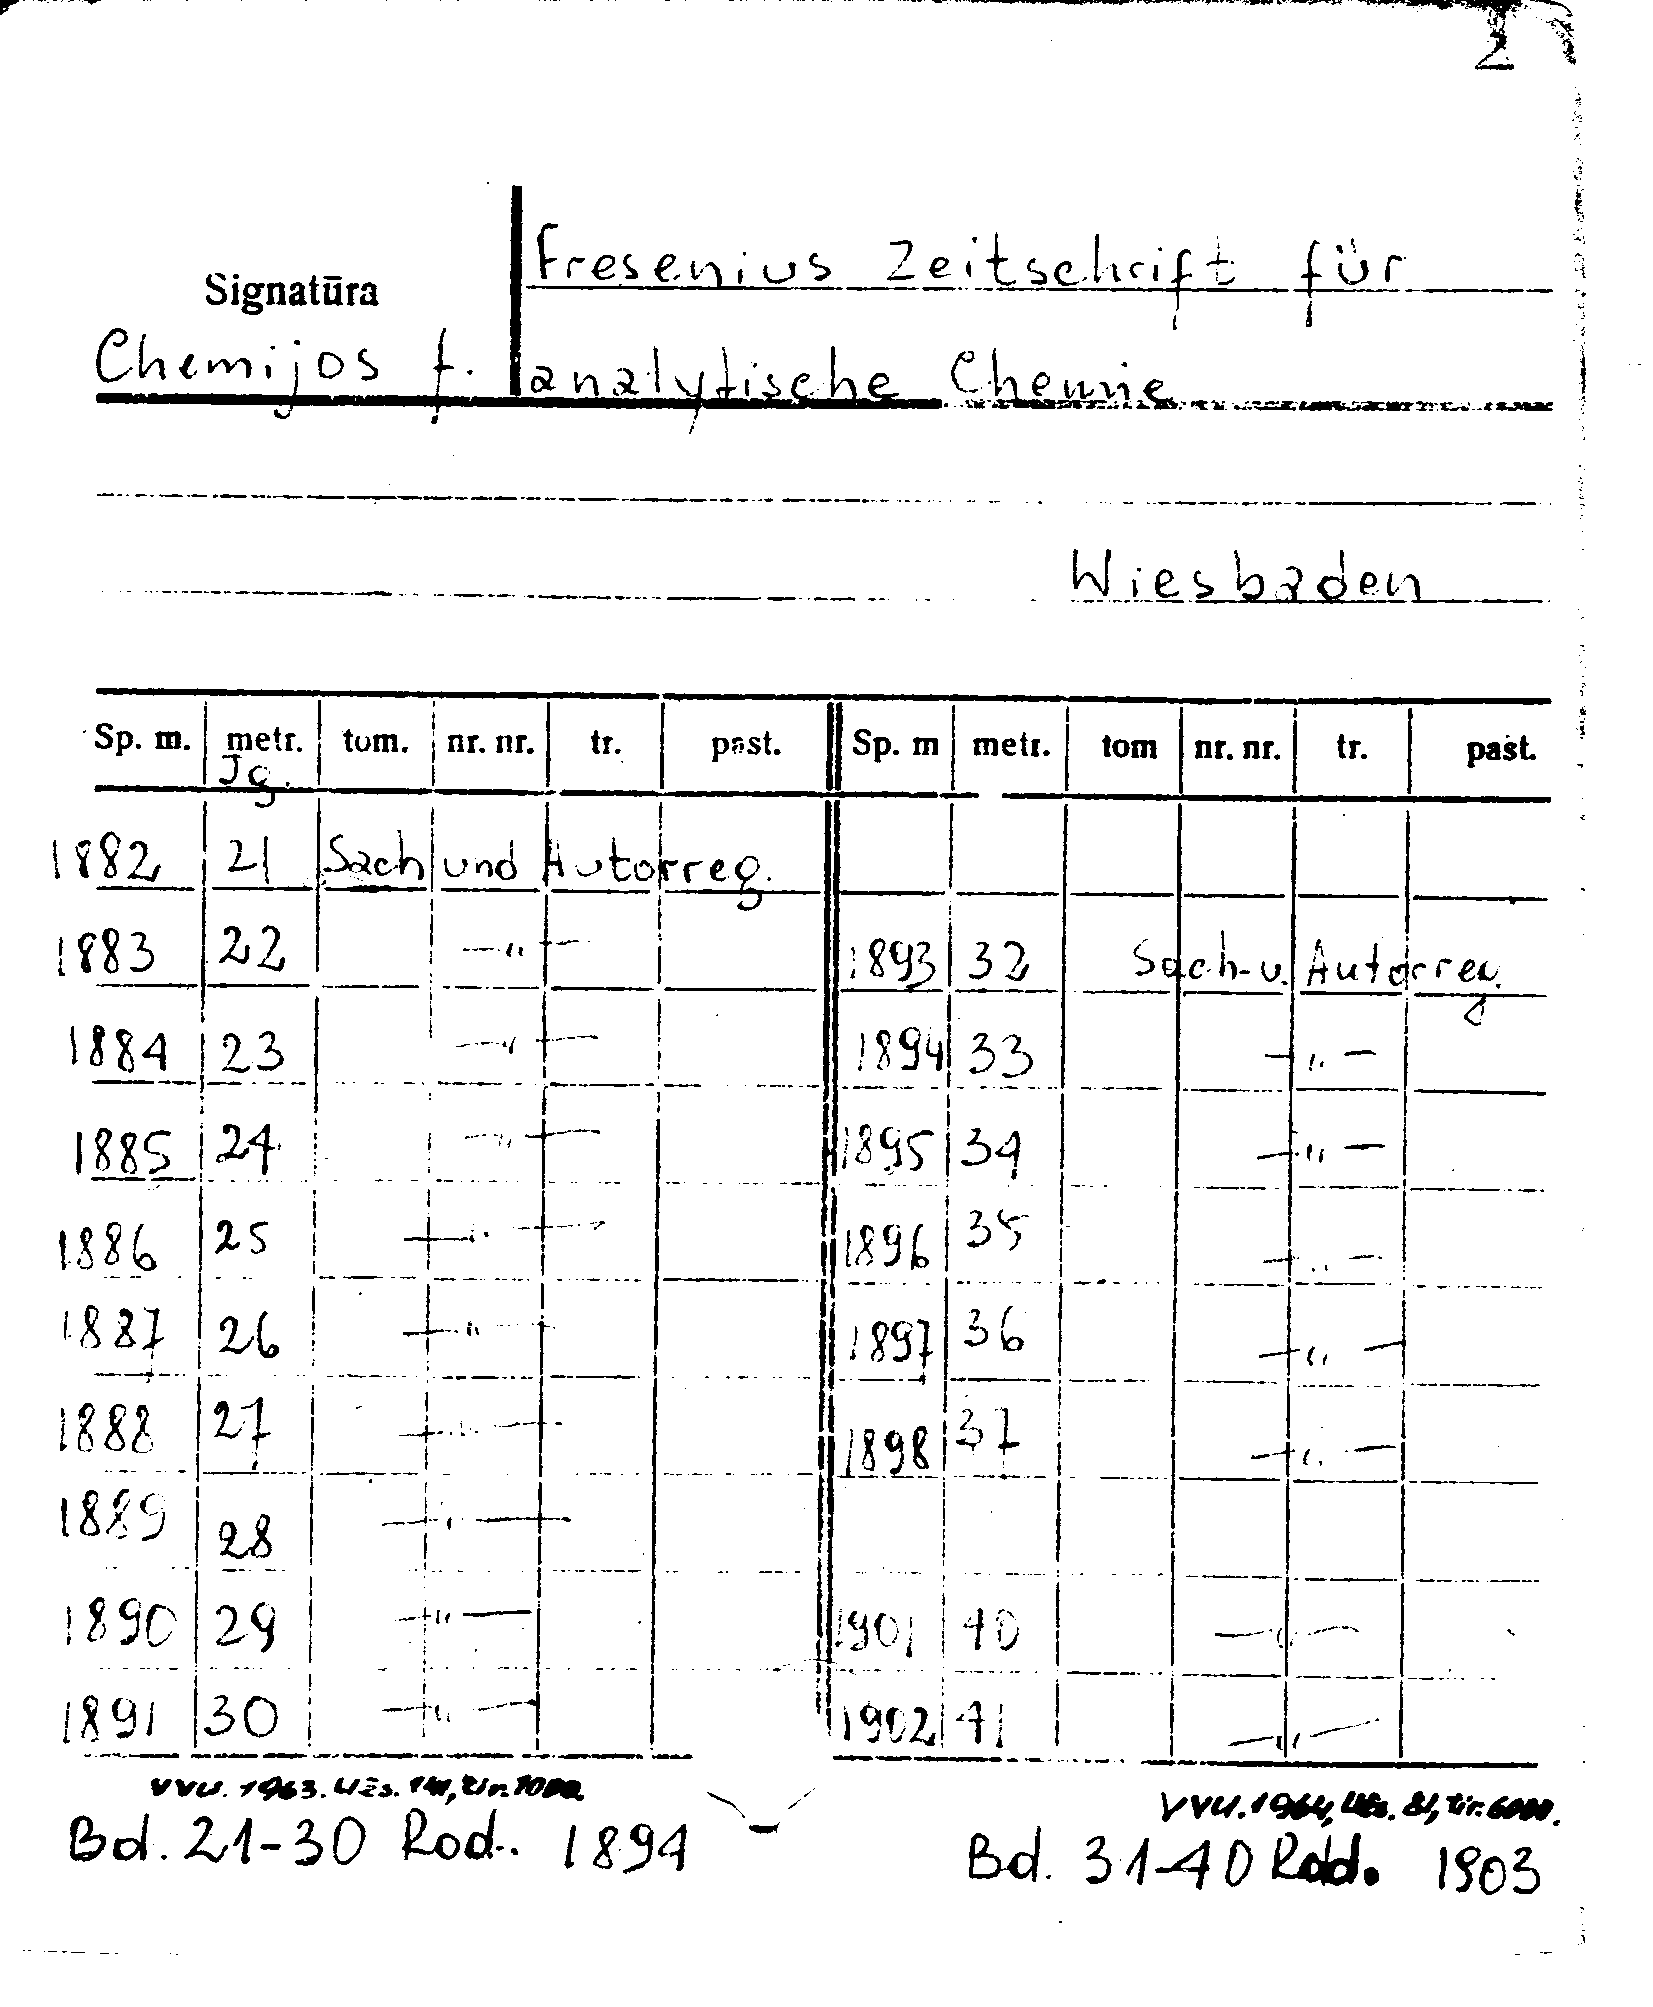 2
Fresenius Zeitschrift für
Signatūra
Chemijos f. analytische Chemie
Wiesbaden
Sp. m. metr. tom. nr. nr. tr. past. Sp. m metr. tom nr. nr. tr. past.
Jg.
1882 21 Sach und Autorreg.
1883 22 —"— 1893 32 Sach-u. Autorreg.
1884 23 —"— 1894 33 —"—
1885 24 —"— 1895 34 —"—
1886 25 —"— 1896 35 —"—
1887 26 —"— 1897 36 —"—
1888 27 —"— 1898 37 —"—
1889 28 —"—
1890 29 —"— 1901 40 —"—
1891 30 —"— 1902 41 —"—
VVU. 1963. Užs. tir. 1000. VVU. 1964, Užs. 81, tir. 6000.
Bd. 21-30 Rod. 1894 Bd. 31-40 Rod. 1903